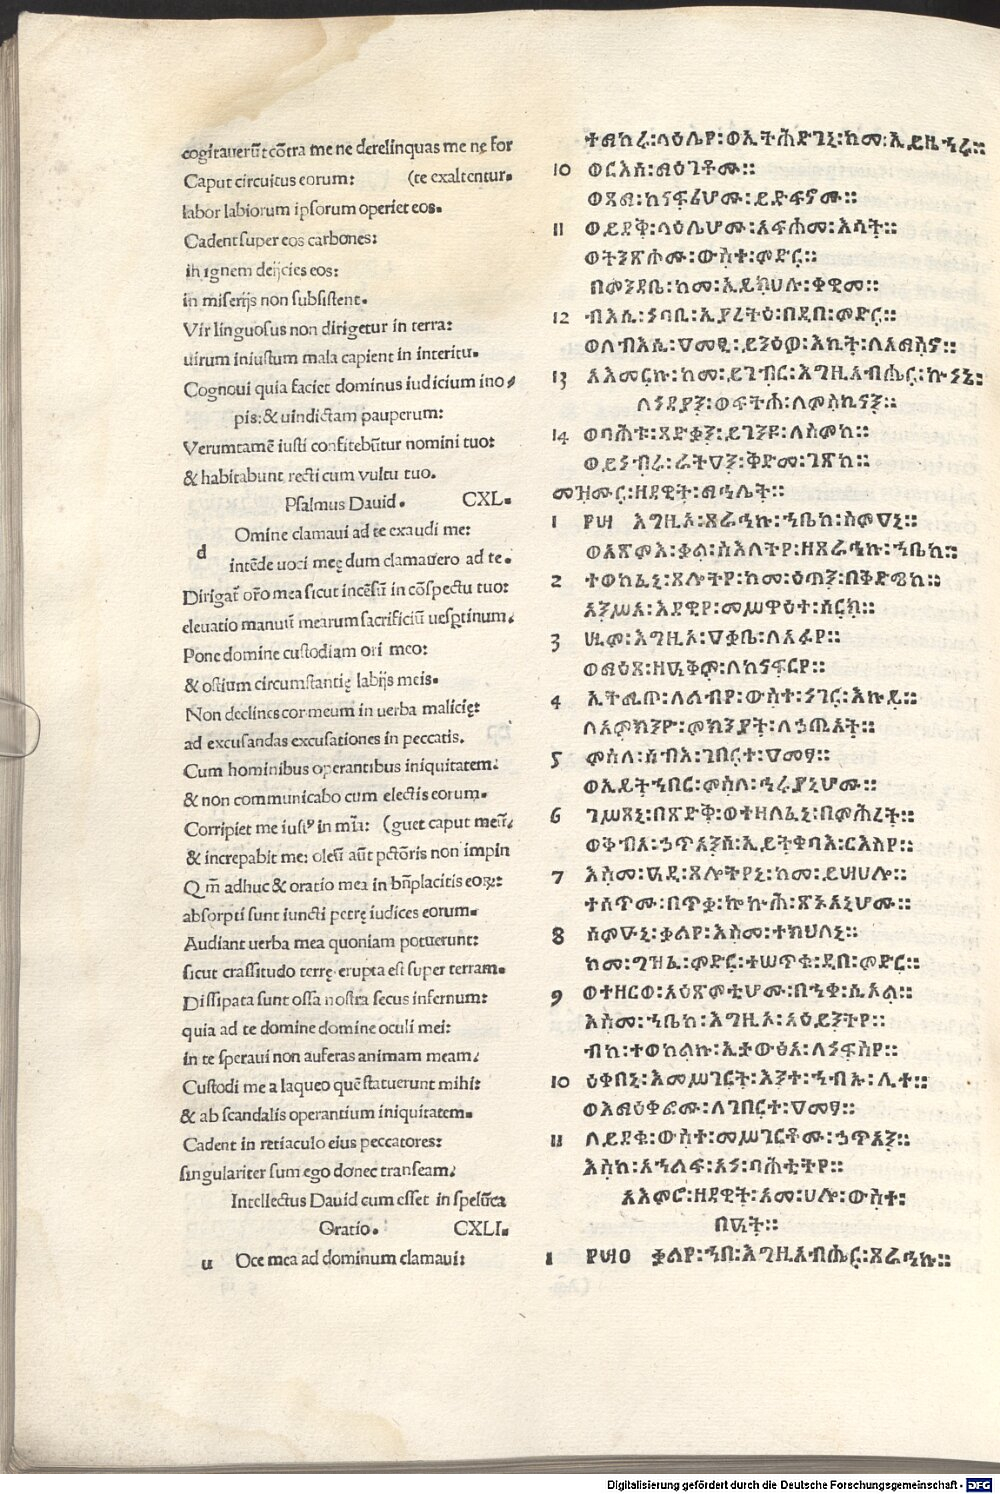 cogitauerūt cōtra me ne derelinquas me nę for
Caput circuitus eorum: (te exaltentur.
labor labiorum ipsorum operiet eos.
Cadent super eos carbones:
ih ignem deijcies eos:
in miserijs non subsistent.
Vir linguosus non dirigetur in terra:
uirum iniustum mala capient in interitu.
Cognoui quia faciet dominus iudicium ino/
pis: & uindictam pauperum:
Verumtamē iusti confitebūtur nomini tuo:
& habitabunt recti cum vultu tuo.
Psalmus Dauid. CXL.
d Omine clamaui ad te exaudi me:
intēde uoci meę dum clamauero ad te.
Dirigat̄ or̄o mea sicut incēsū in cōspectu tuo:
eleuatio manuū mearum sacrificiū uesptinum.
Pone domine custodiam ori meo:
& ostium circumstantię labijs meis.
Non declines cor meum in uerba malicię:
ad excusandas excusationes in peccatis.
Cum hominibus operantibus iniquitatem:
& non communicabo cum electis eorum.
Corripiet me iust⁹ in mīa: (guet caput meū.
& increpabit me: oleū aūt pctōris non impin
Qm̄ adhuc & oratio mea in bn̄placitis eoꝝ:
absorpti sunt iuncti petrę iudices eorum.
Audiant uerba mea quoniam potuerunt:
sicut crassitudo terrę erupta est super terram.
Dissipata sunt ossa nostra secus infernum:
quia ad te domine domine oculi mei:
in te speraui non auferas animam meam:
Custodi me a laqueo quē statuerunt mihi:
& ab scandalis operantium iniquitatem.
Cadent in retiaculo eius peccatores:
singulariter sum ego donec transeam:
Intellectus Dauid cum esset in spelūca
Oratio. CXLI.
u Oce mea ad dominum clamaui:
ተማከሩ፡ላዕሌየ፡ወኢትሕድገኒ፡ከመ፡ኢይዘኀሩ፡፡
10 ወርእሰ፡ማዕገቶሙ፡፡
ወጻማ፡ከናፍሪሆሙ፡ይድፍኖሙ፡፡
11 ወይደቅ፡ላዕሌሆሙ፡አፍሐመ፡እሳት፡፡
ወትነጽሖሙ፡ውስተ፡ምድር፡፡
በምንዳቤ፡ከመ፡ኢይክህሉ፡ቀዊመ፡፡
12 ብእሲ፡ነባቢ፡ኢያረትዕ፡በዲበ፡ምድር፡፡
ወለብእሲ፡ዐመፂ፡ይነዕዎ፡እኪት፡ለአማስኖ፡፡
13 አአመርኩ፡ከመ፡ይገብር፡እግዚአብሔር፡ኵነኔ፡
ለነዳያን፡ወፍትሐ፡ለምስኪናን፡፡
14 ወባሕቱ፡ጻድቃን፡ይገንዩ፡ለስምከ፡፡
ወይነብሩ፡ራትዓን፡ቅድመ፡ገጽከ፡፡
መዝሙር፡ዘዳዊት፡ማኅሌት፡፡
1 ፻፵ እግዚኦ፡ጸራኅኩ፡ኀቤከ፡ስምዐኒ፡፡
ወአጽምእ፡ቃለ፡ስእለትየ፡ዘጸራኅኩ፡ኀቤከ፡፡
2 ተወከፈኒ፡ጸሎትየ፡ከመ፡ዕጣን፡በቅድሜከ፡፡
አንሥአ፡እደዊየ፡መሥዋዕተ፡ሰርክ፡፡
3 ሢም፡እግዚኦ፡ዐቃቤ፡ለአፉየ፡፡
ወማዕጾ፡ዘዓቅም፡ለከናፍርየ፡፡
4 ኢትሚጦ፡ለልብየ፡ውስተ፡ነገር፡እኩይ፡፡
ለአምክንዮ፡ምክንያት፡ለኃጢአት፡፡
5 ምስለ፡ሰብእ፡ገበርተ፡ዐመፃ፡፡
ወኢይትኀበር፡ምስለ፡ኅሩያኒሆሙ፡፡
6 ገሥጸኒ፡በጽድቅ፡ወተዘለፈኒ፡በምሕረት፡፡
ወቅብአ፡ኃጥአንሰ፡ኢይትቀባእ፡ርእስየ፡፡
7 እስመ፡ዓዲ፡ጸሎትየኒ፡ከመ፡ይሣሀሎ፡፡
ተሰጥሙ፡በጥቃ፡ኰኵሕ፡ጽኑዓኒሆሙ፡፡
8 ሰምዑኒ፡ቃልየ፡እስመ፡ተክህለኒ፡፡
ከመ፡ግዝፈ፡ምድር፡ተሠጥቁ፡ዲበ፡ምድር፡፡
9 ወተዘርወ፡አዕጽምቲሆሙ፡በኀቀ፡ሲኦል፡፡
እስመ፡ኀቤከ፡እግዚኦ፡አዕይንትየ፡፡
ብከ፡ተወከልኩ፡ኢታውፅአ፡ለነፍስየ፡፡
10 ዕቀበኒ፡እመሥገርት፡እንተ፡ኀብኡ፡ሊተ፡፡
ወእማዕቀፎሙ፡ለገበርተ፡ዐመፃ፡፡
11 ለይደቁ፡ውስተ፡መሥገርቶሙ፡ኃጥአን፡፡
እስከ፡አኀልፍ፡አነ፡ባሕቲትየ፡፡
አእምሮ፡ዘዳዊት፡አመ፡ሀሎ፡ውስተ፡
በዓት፡፡
1 ፻፵፩ ቃልየ፡ኀበ፡እግዚአብሔር፡ጸራኅኩ፡፡
Digitalisierung gefördert durch die Deutsche Forschungsgemeinschaft - DFG